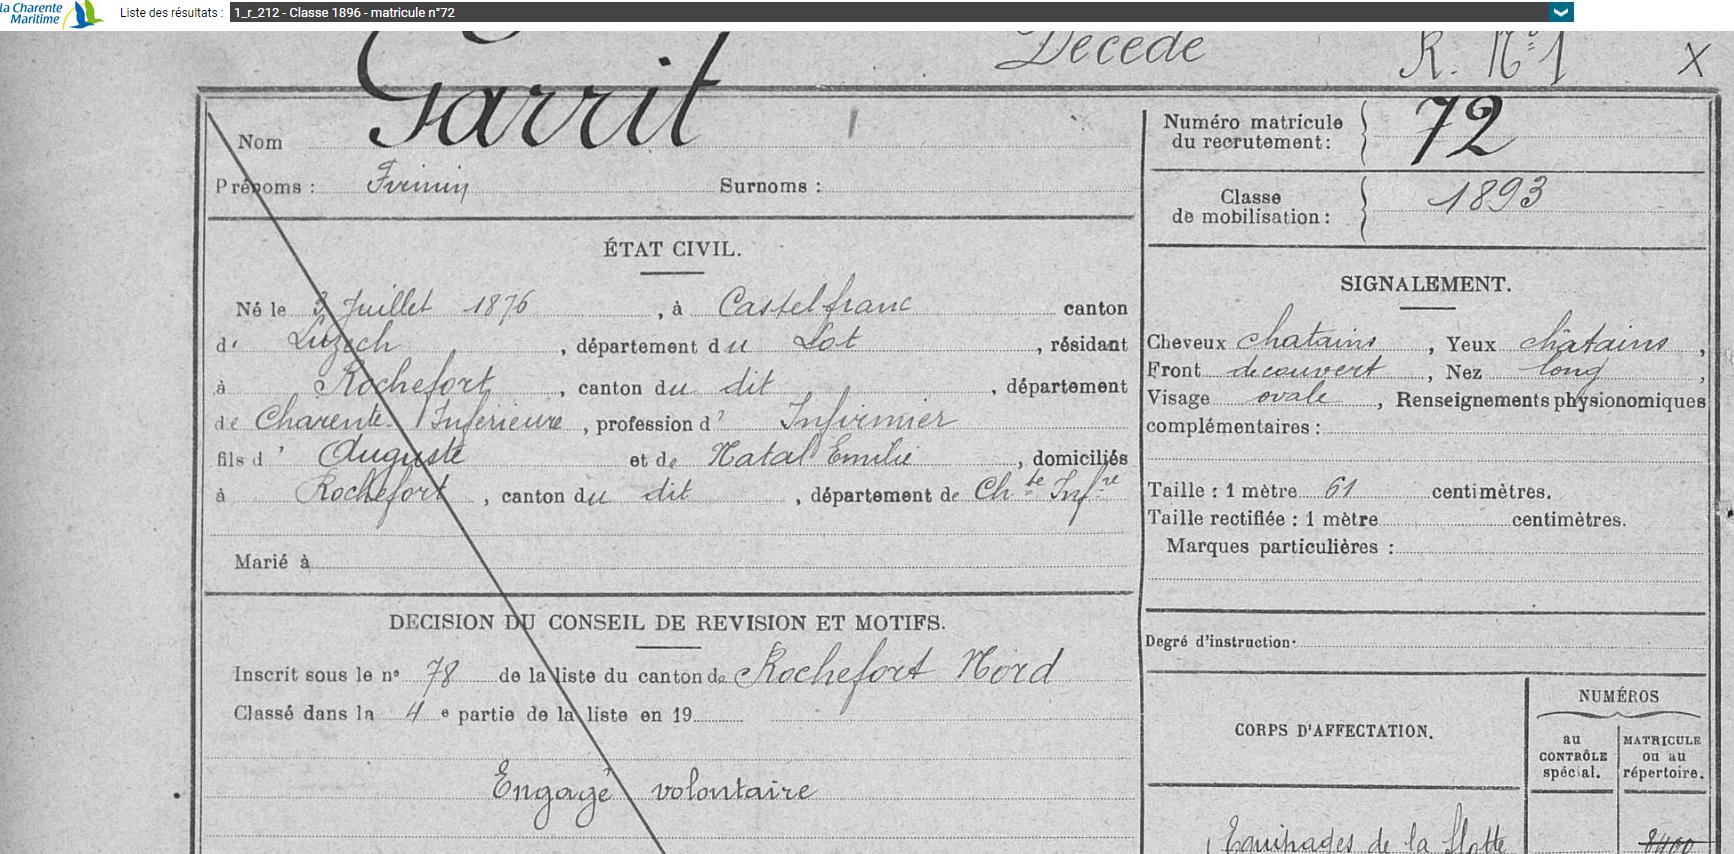 la Charente
Maritime
Liste des résultats : 1_r_212 - Classe 1896 - matricule n°72
Décédé
R. N° 1 X
Nom Garrit
Prénoms : Firmin Surnoms :
Numéro matricule
du recrutement : 72
Classe
de mobilisation : 1893
ÉTAT CIVIL.
Né le 3 Juillet 1876, à Castelfranc canton
d' Luzech, département du Lot, résidant
à Rochefort, canton du dit, département
de Charente Inférieure, profession d' Infirmier
fils d' Auguste et de Natal Emilie, domiciliés
à Rochefort, canton du dit, département de Chte Infre
Marié à
SIGNALEMENT.
Cheveux chatains, Yeux châtains,
Front découvert, Nez long,
Visage ovale, Renseignements physionomiques
complémentaires :
Taille : 1 mètre 61 centimètres.
Taille rectifiée : 1 mètre centimètres.
Marques particulières :
DECISION DU CONSEIL DE REVISION ET MOTIFS.
Inscrit sous le n° 78 de la liste du canton de Rochefort Nord
Classé dans la 4 e partie de la liste en 19
Engagé volontaire
Degré d'instruction
CORPS D'AFFECTATION.
NUMÉROS
au
CONTRÔLE
spécial.
MATRICULE
ou au
répertoire.
Equipages de la flotte